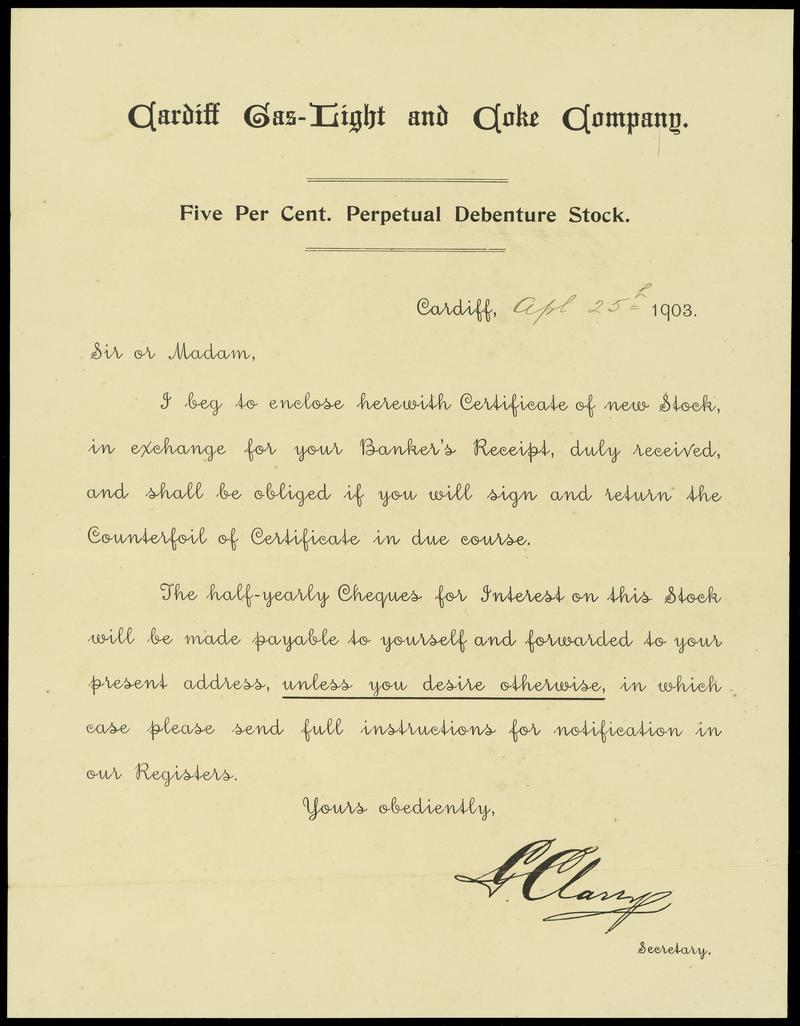 Cardiff Gas-Light and Coke Company.
Five Per Cent. Perpetual Debenture Stock.
Cardiff, Apl 25th 1903.
Sir or Madam,
I beg to enclose herewith Certificate of new Stock,
in exchange for your Banker's Receipt, duly received,
and shall be obliged if you will sign and return the
Counterfoil of Certificate in due course.
The half-yearly Cheques for Interest on this Stock
will be made payable to yourself and forwarded to your
present address, unless you desire otherwise, in which
case please send full instructions for notification in
our Registers.
Yours obediently,
G. Clarry
Secretary.